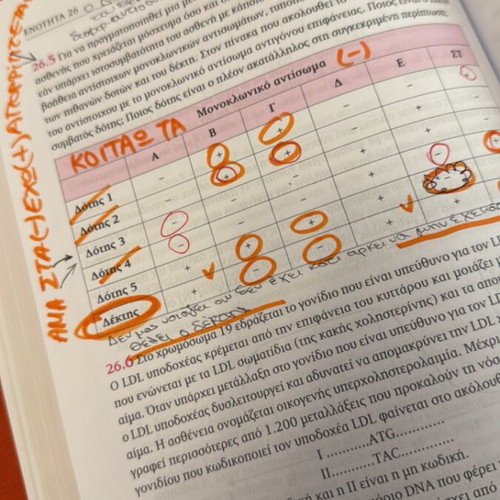 ΕΝΟΤΗΤΑ 26
26.5 Για να πραγματοποιηθεί μια με
ασθενής που χρειάζεται μόσχευμα όσο και ο
εάν υπάρχει ιστοσυμβατότητα του ασθενή με κάποιο
βοήθεια αντίστοιχων μονοκλωνικών αντισωμάτων, τυποπ
των πιθανών δοτών και του δέκτη. Στον πίνακα που ακολουθεί το
του αντιστοιχεί με το μονοκλωνικό αντίσωμα αντιγόνου επιφάνειας. Ποιος είναι ο
συμβατός δότης; Ποιος δότης είναι ο πλέον ακατάλληλος στη συγκεκριμένη περίπτωση;
Μονοκλωνικό αντίσωμα (-)
ΚΟΙΤΑΩ ΤΑ
Α Β Γ Δ Ε ΣΤ
Δότης 1
Δότης 2
Δότης 3
Δότης 4
Δότης 5
Δέκτης
ΑΝΑ ΣΤΑ (-) ΕΧΩ (+) ΑΠΟΡΡΙΠΤΕΤΑΙ
Δεν μας νοιάζει αν δεν έχει κάτι αρκεί να μην έχει
θέλει ο δέκτης
26.6 Στο χρωμόσωμα 19 εδράζεται το γονίδιο που είναι υπεύθυνο για τον L
Ο LDL υποδοχέας κρέμεται από την επιφάνεια του κυττάρου και μοιάζει μ
που ενώνεται με τα LDL σωματίδια (της κακής χοληστερίνης) και τα απο
αίμα. Όταν υπάρχει μετάλλαξη στο γονίδιο που είναι υπεύθυνο για τον L
ο LDL υποδοχέας δυσλειτουργεί και αδυνατεί να απομακρύνει την LDL χ
αίμα. Η ασθένεια ονομάζεται οικογενής υπερχοληστερολαιμία. Μέχρι
γραφεί περισσότερες από 1.200 μεταλλάξεις που προκαλούν τη νόσ
γονιδίου που κωδικοποιεί τον υποδοχέα LDL φαίνεται στο ακόλου
I ............ATG............
II............TAC............
και η II είναι η μη κωδική.
DNA που φέρει